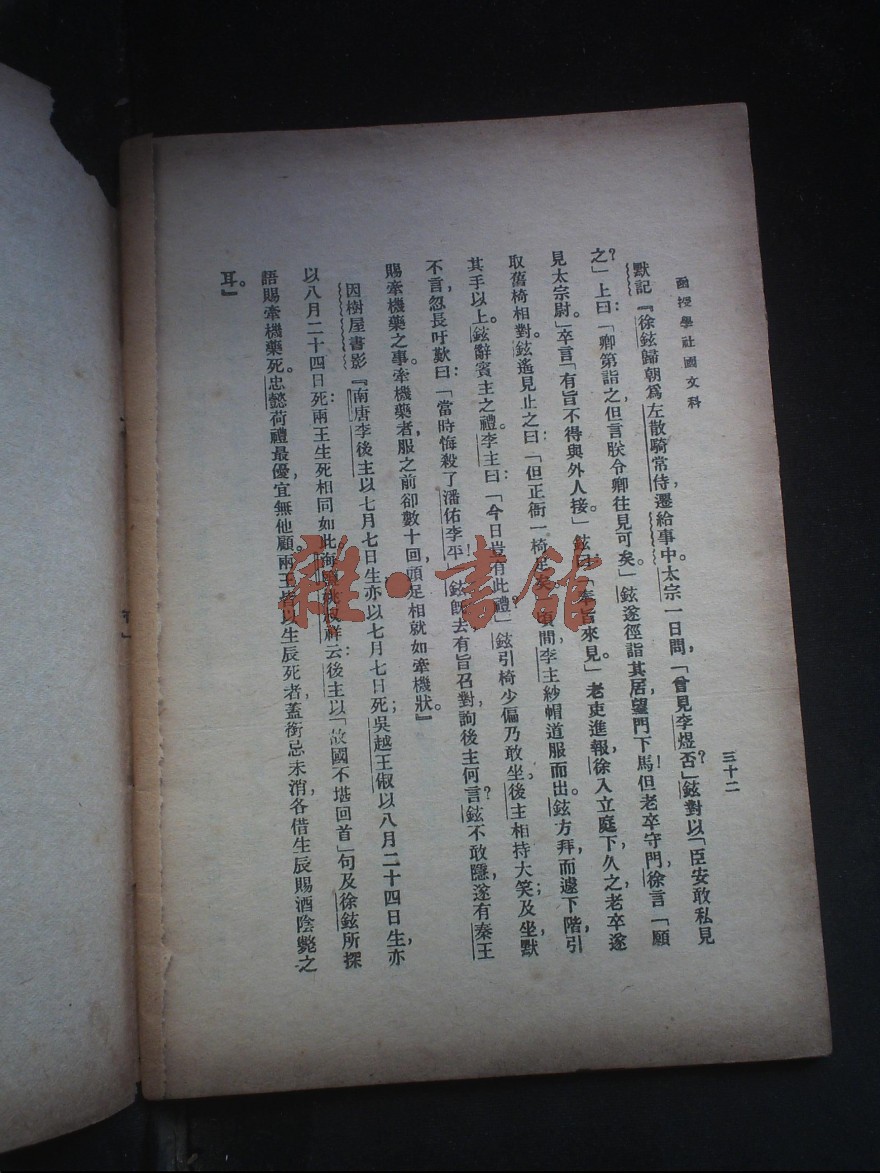 函授學社國文科
三十二
默記『徐鉉歸朝爲左散騎常侍，遷給事中。太宗一日問，「曾見李煜否？」鉉對以「臣安敢私見
之？」上曰：「卿第詣之，但言朕令卿往見可矣。」鉉遂徑詣其居，望門下馬，但老卒守門，徐言「願
見太宗尉」卒言「有旨不得與外人接」鉉曰「奉旨來見。」老吏進報，徐入立庭下，久之，老卒遂
取舊椅相對。鉉遙見止之曰：「但正衙一椅足矣。」頃間，李主紗帽道服而出。鉉方拜，而遽下階，引
其手以上。鉉辭賓主之禮。李主曰：「今日豈有此禮？」鉉引椅少偏，乃敢坐。後主相持大笑；及坐，默
不言，忽長吁歎曰：「當時悔殺了潘佑李平！」鉉既去，有旨召對，詢後主何言？鉉不敢隱，遂有秦王
賜牽機藥之事。牽機藥者，服之前卻數十回，頭足相就，如牽機狀。』
因樹屋書影『南唐李後主以七月七日生，亦以七月七日死；吳越王俶以八月二十四日生，亦
以八月二十四日死：兩王生死相同如此。海鹽姚叔祥云：後主以「故國不堪回首」句，及徐鉉所探
語，賜牽機藥死。忠懿荷禮最優，宜無他顧。兩王皆以生辰死者，蓋銜忌未消，各借生辰賜酒陰斃之
耳。』
雜·書館